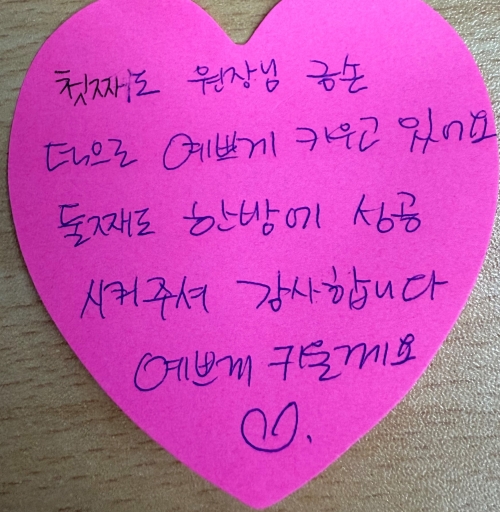 첫째도 원장님 금손
덕으로 예쁘게 키우고 있어요
둘째도 한방에 성공
시켜주셔 감사합니다
예쁘게 키울게요
♡.